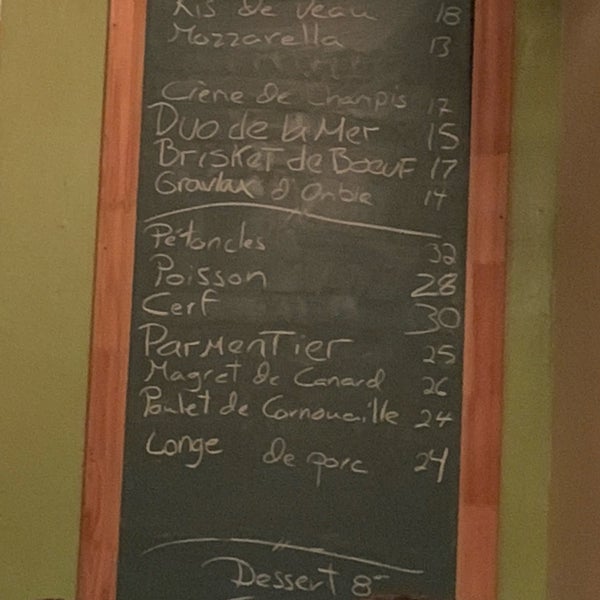 Ris de veau 18
Mozzarella 13
Crème de Champis 12
Duo de la Mer 15
Brisket de Boeuf 17
Gravlax d'Omble 14
Pétoncles 32
Poisson 28
Cerf 30
Parmentier 25
Magret de Canard 26
Poulet de Cornouaille 24
Longe de porc 24
Dessert 8-